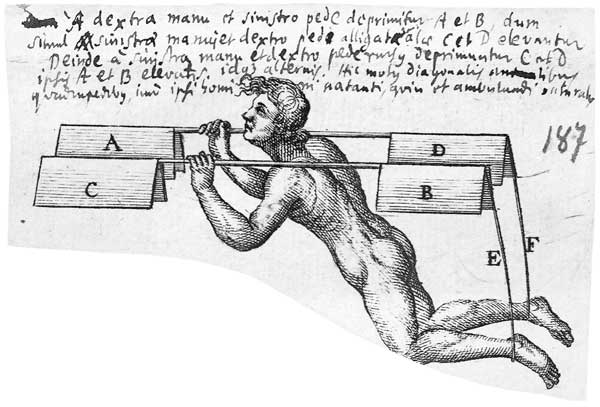 A dextra manu et sinistro pede deprimitur A et B, dum
simul a sinistra manu et dextro pede alligatae alae C et D elevantur
Deinde a sinistra manu et dextro pede rursus deprimuntur C et D
ipsis A et B elevatis. idq alternis. Hic motus diagonalis
quadrupedibus, natanti, quin et ambulandi naturalis
187
A
D
C
B
E
F